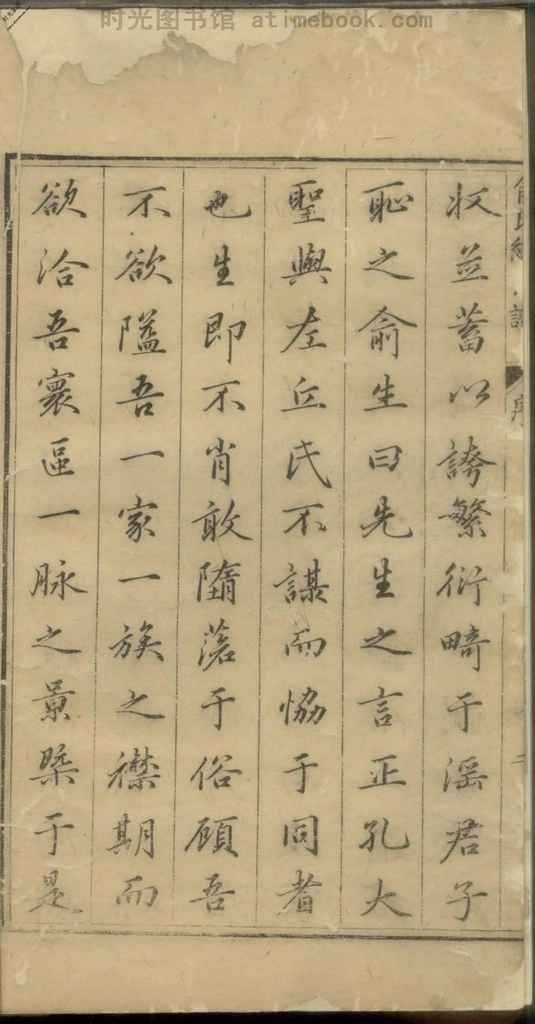 时光图书馆 atimebook.com
序
收並蓄以誇繁衍畸于滛君子
恥之俞生曰先生之言正孔大
聖與左丘氏不謀而恊于同者
也生即不肖敢隨蕩于俗顧吾
不欲隘吾一家一族之襟期而
欲洽吾寰區一脉之景槩于是